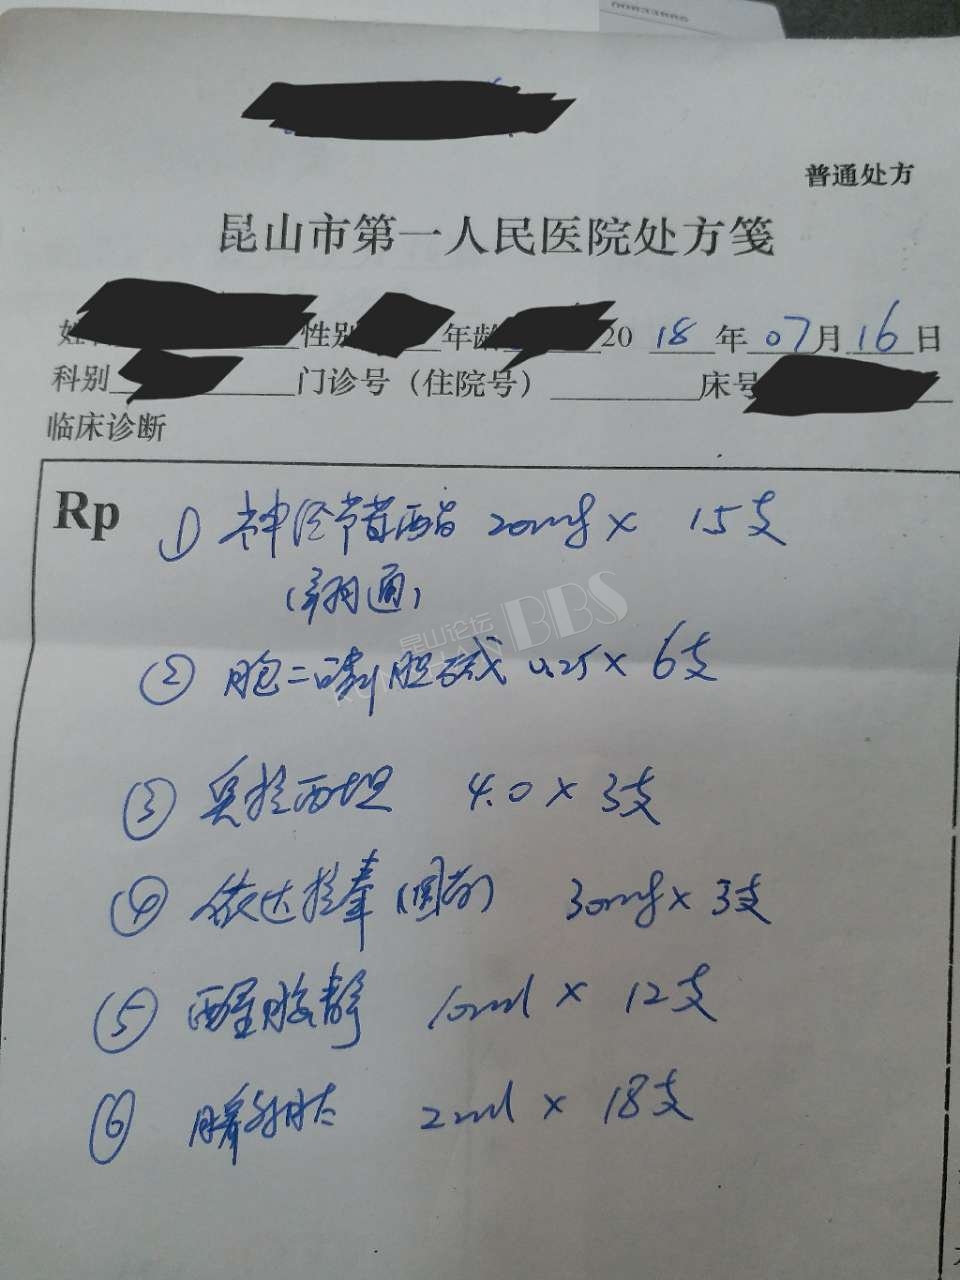 普通处方
昆山市第一人民医院处方笺
姓 性别 年龄 2018年07月16日
科别 门诊号（住院号） 床号
临床诊断
Rp ① 神经节苷酯 20mg × 15支
(翔通)
昆山论坛 BBS
② 胞二磷胆碱 0.25 × 6支
③ 奥拉西坦 4.0 × 3支
④ 依达拉奉 (国产) 30mg × 3支
⑤ 醒脑静 10ml × 12支
⑥ 2ml × 18支